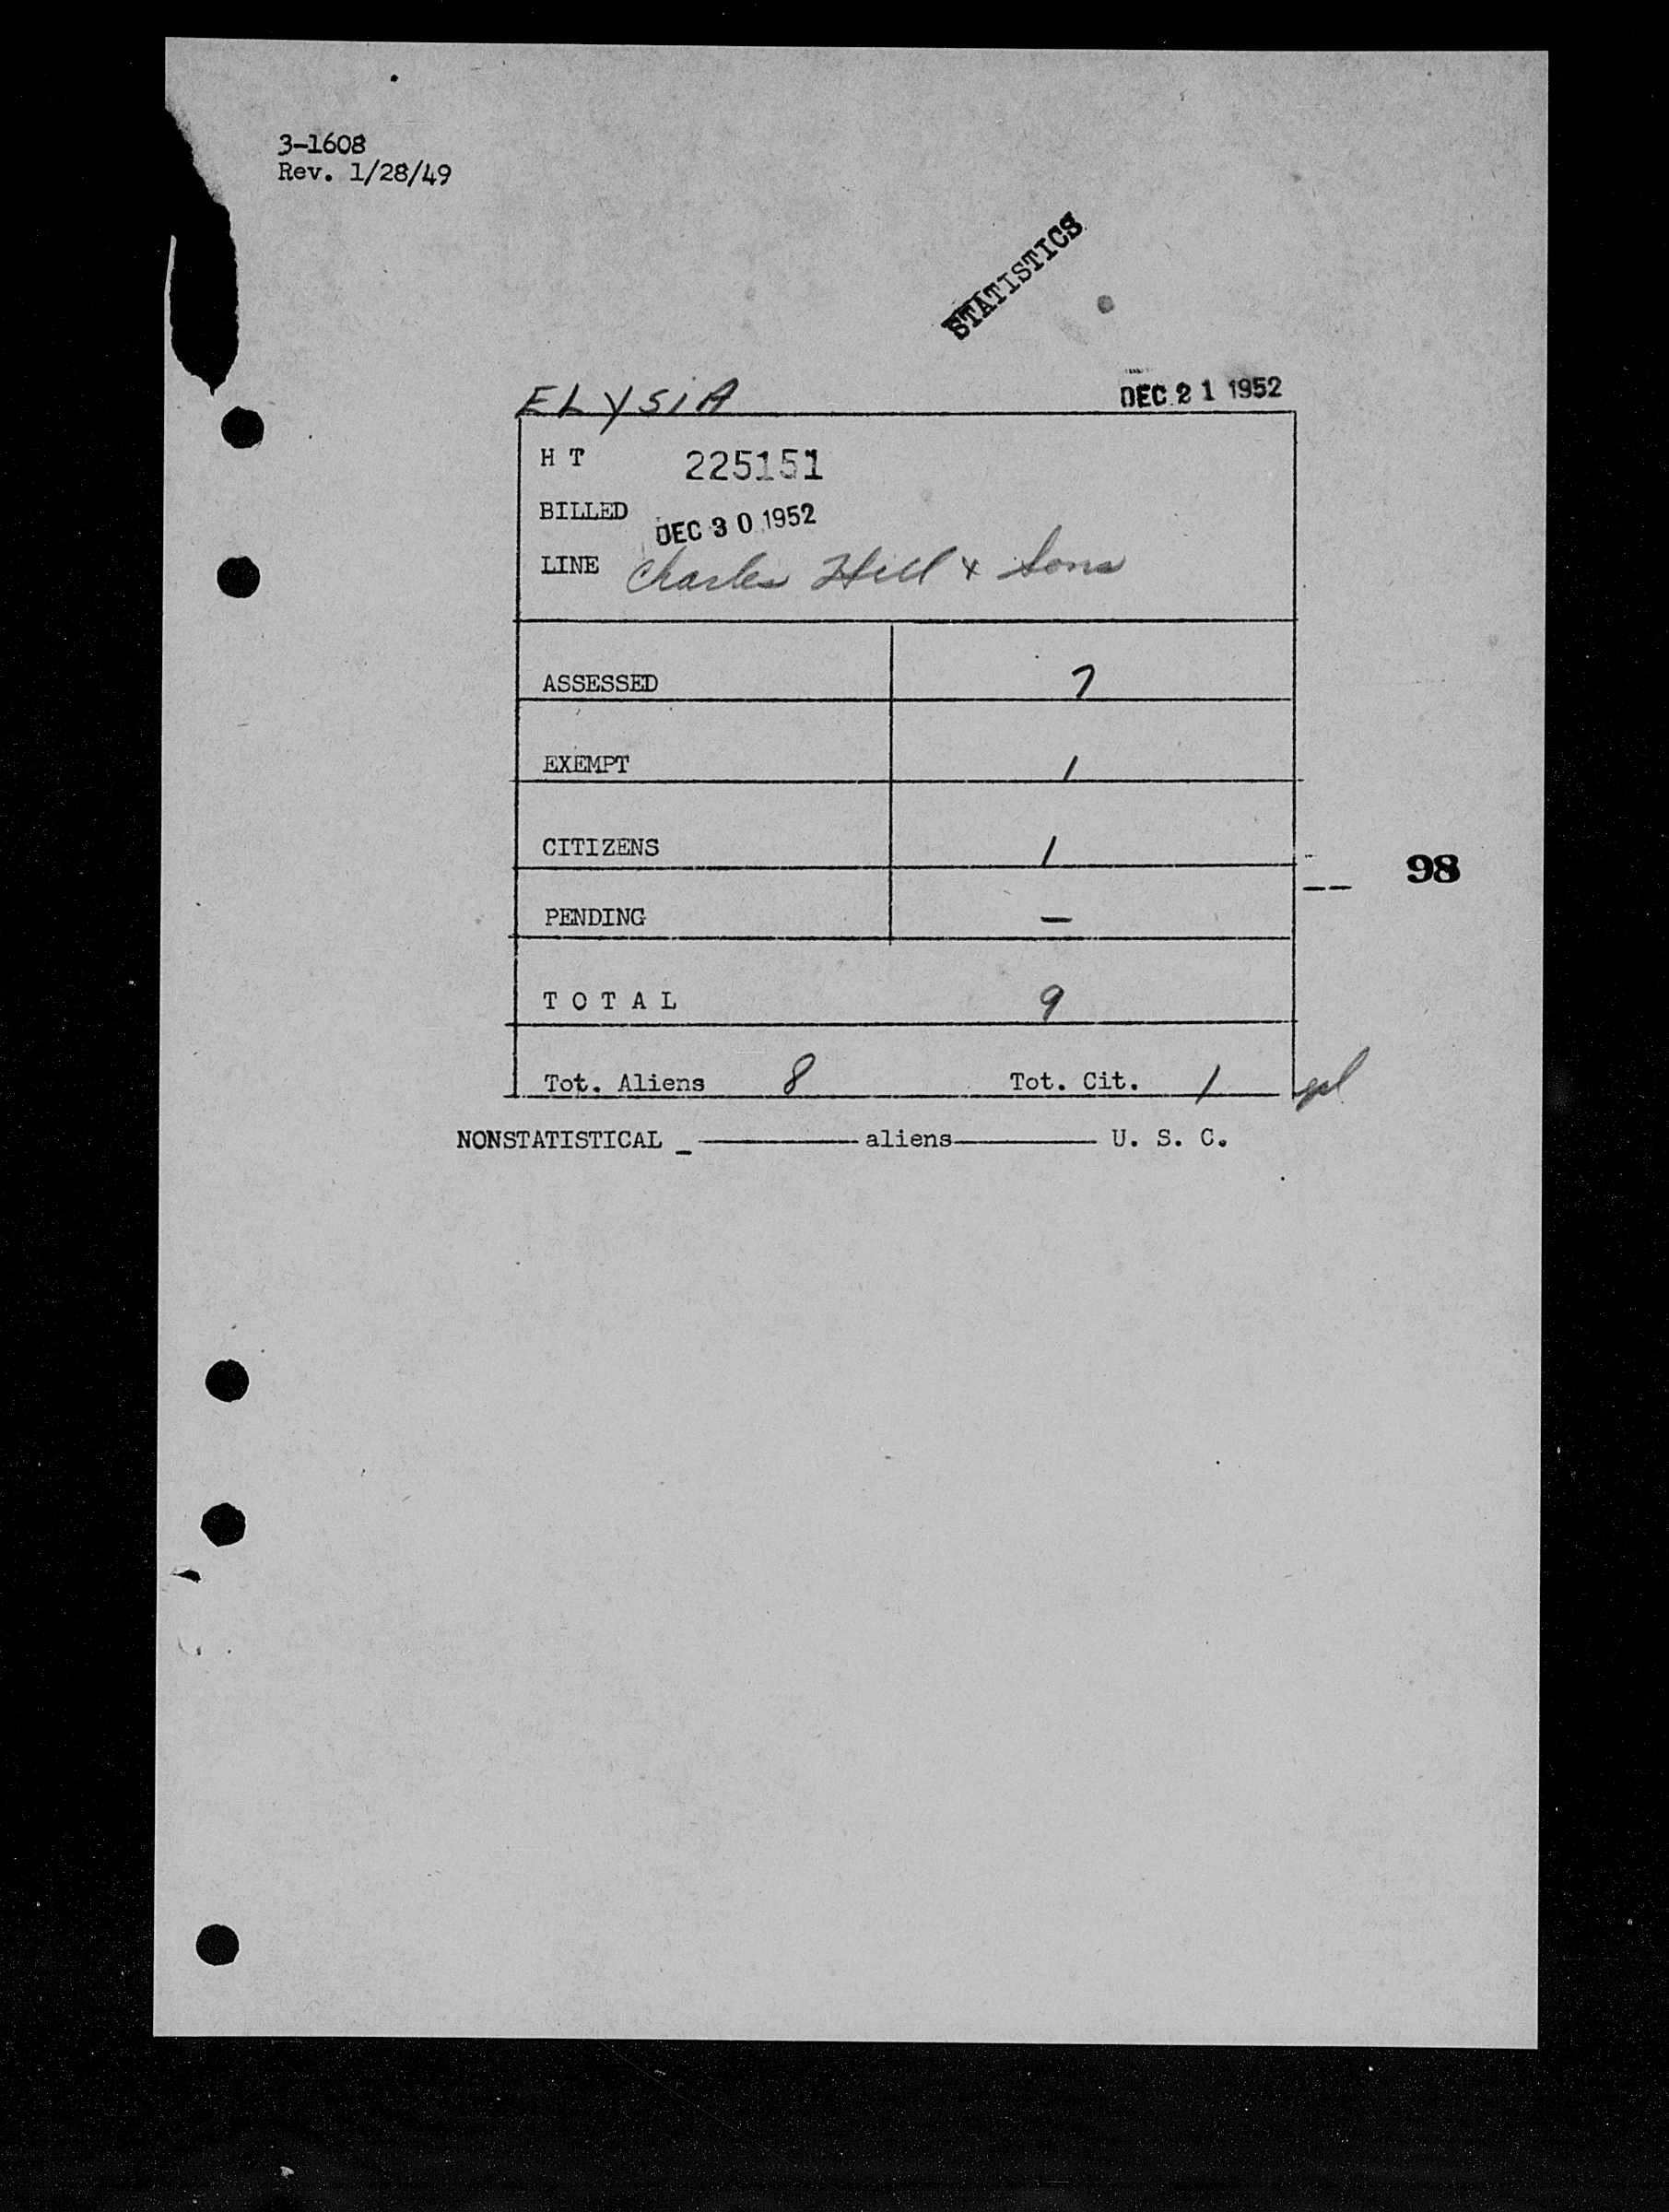 3-1608
Rev. 1/28/49
STATISTICS
ELYSiA DEC 21 1952
H T 225151
BILLED DEC 30 1952
LINE Charles Hill & Sons
ASSESSED 7
EXEMPT 1
CITIZENS 1
98
PENDING —
T O T A L 9
Tot. Aliens 8 Tot. Cit. 1
NONSTATISTICAL _ ———— aliens ———— U. S. C.